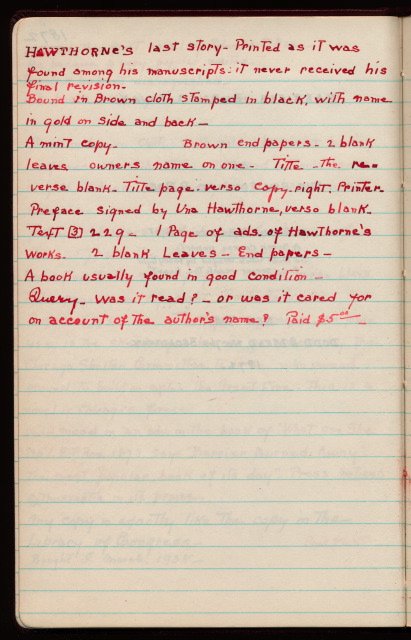 HAWTHORNE'S last story - Printed as it was
found among his manuscripts: it never received his
final revision.
Bound in Brown cloth stamped in black, with name
in gold on side and back -
A mint copy. Brown end papers - 2 blank
leaves owners name on one - Title - The re=
verse blank. Title page. verso Copy.right. Printer.
Preface signed by Una Hawthorne, verso blank.
Text [3] 229 - 1 Page of ads. of Hawthorne's
works. 2 blank Leaves - End papers -
A book usually found in good condition -
Query - Was it read? - or was it cared for
on account of the author's name? Paid $5.00